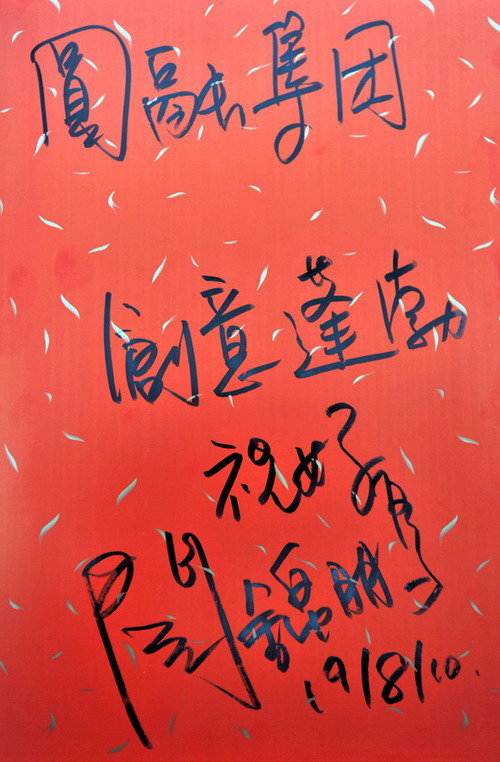 圓融集团
創意蓬勃
祝好
關錦鵬
19/8/10.